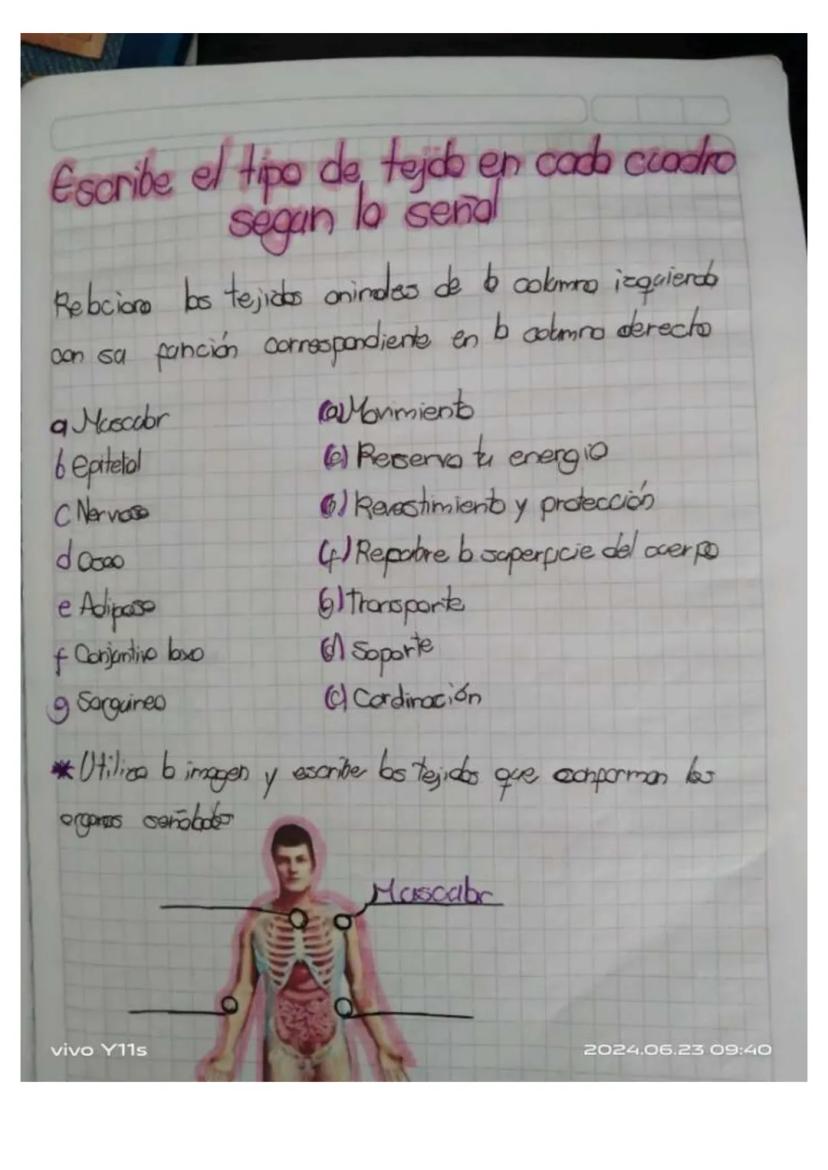 Escribe el tipo de tejido en cada cuadro
segun lo señal
Relaciona los tejidos animales de la columna izquierda
con su función correspondiente en la columna derecha
a Muscular
(a) Movimiento
b epitelial
(e) Reserva tu energia
c Nervoso
(b) Revestimiento y protección
d Oseo
(f) Recubre la superficie del cuerpo
e Adiposo
(g) Transporte
f Conjuntivo laxo
(d) Soporte
g Sanguineo
(c) Cordinación
* Utiliza la imagen y escribe los tejidos que conforman los
organos señalados
Muscular
vivo Y11s
2024.06.23 09:40